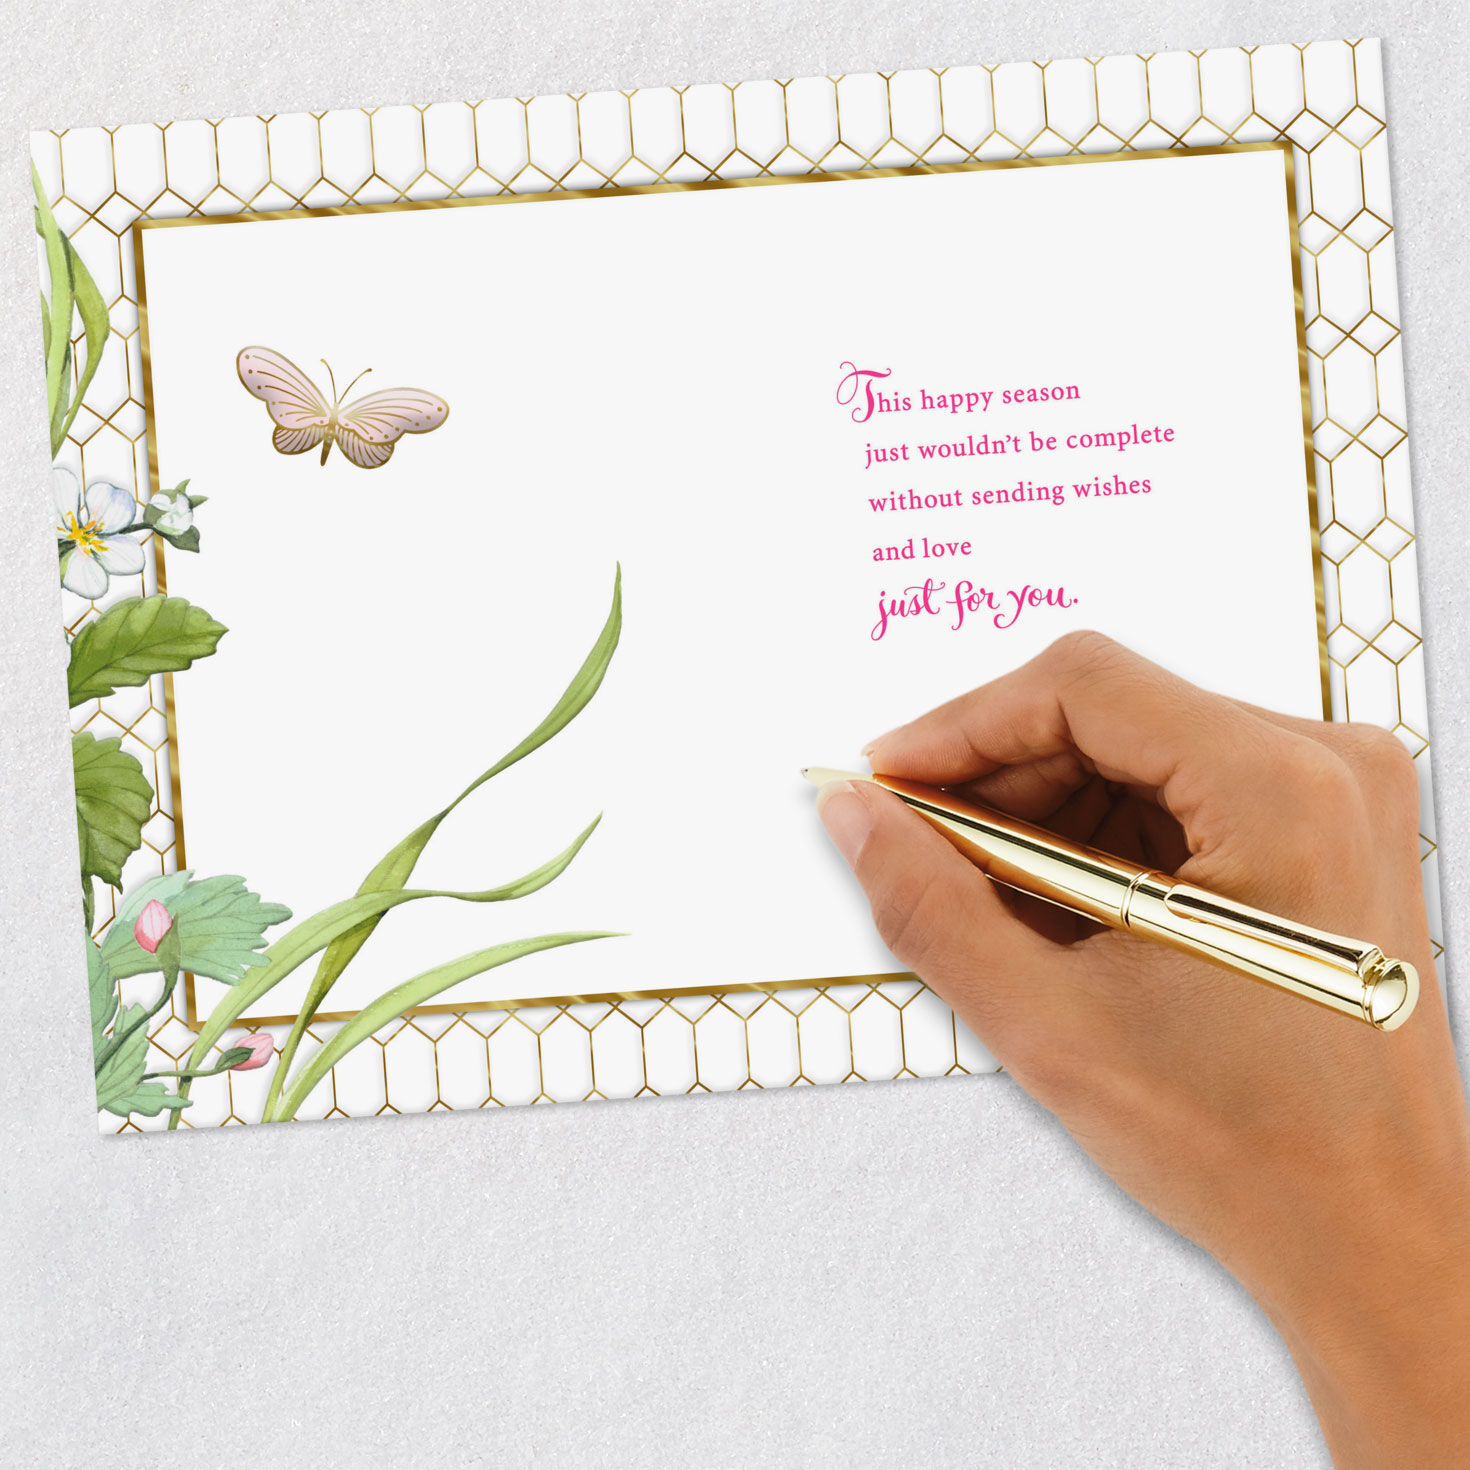 This happy season
just wouldn't be complete
without sending wishes
and love
just for you.